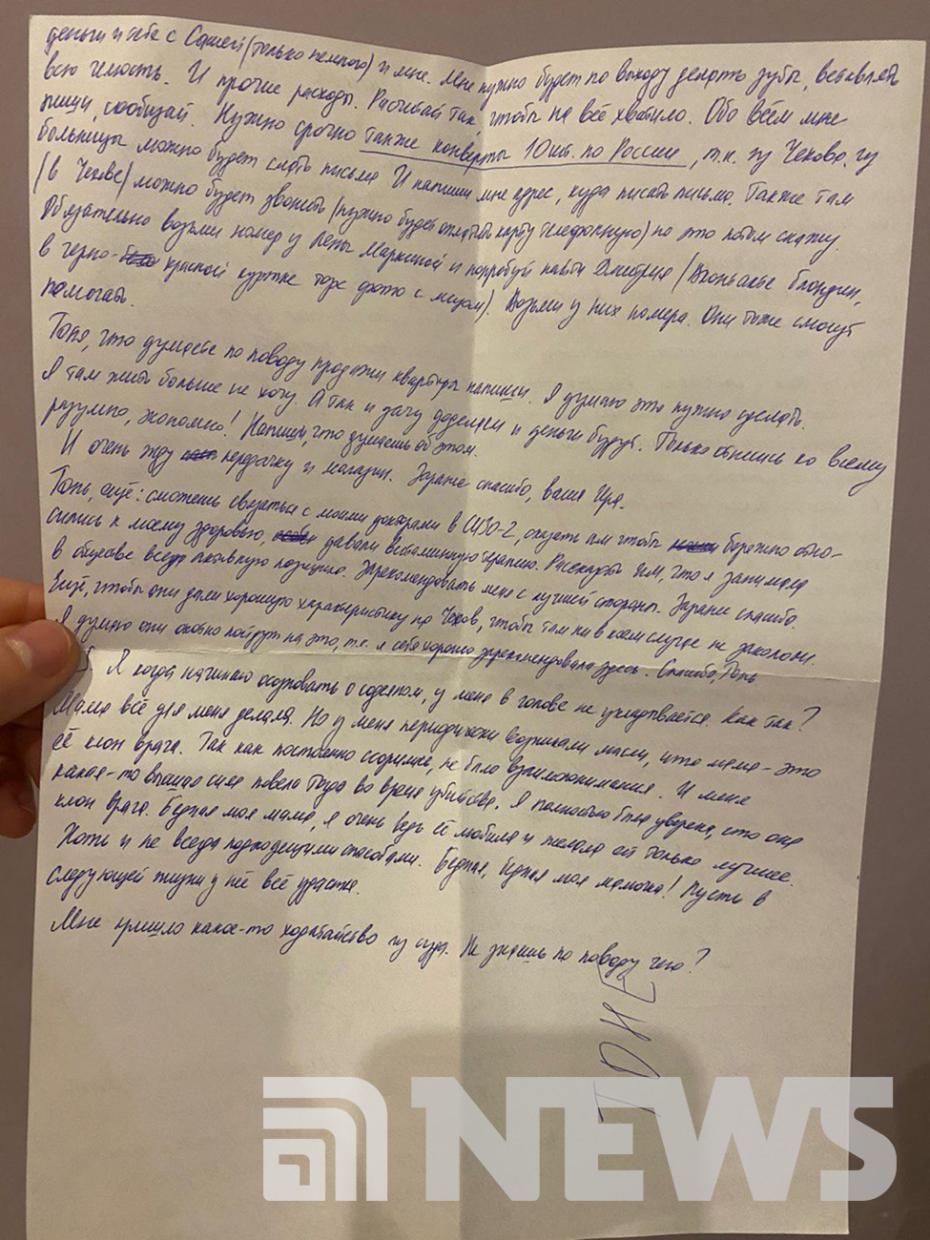 деньги и себе с Сашей (только немного) и мне. Мне нужно будет по выходу делать зубы, вставлять
всю челюсть. И прочие расходы. Расчитай так, чтобы на всё хватило. Обо всём мне
пиши, сообщай. Нужно срочно также конверты 10 шт. по России, т.к. из Чехова, из
больницы можно будет слать письма И напиши мне адрес, куда писать письмо. Также там
(в Чехове) можно будет звонить (нужно будет карту телефонную) но это потом скажу.
Обязательно возьми номер у Лены и попробуй найти Дмитрия (блондин,
в черно- красной куртке торс фото с лицом). Возьми у них номера. Они тоже смогут
помогать.
Тоня, что думаешь по поводу продажи квартиры напиши. Я думаю это нужно сделать.
Я там жить больше не хочу. А так и дачу доделаем и деньги будут. Только отнесись ко всему
разумно, экономно! Напиши, что думаешь об этом.
И очень жду передачку и магазин. Заранее спасибо, ваша Ира.
Тонь, ещё: сможешь связаться с моими докторами в СИЗО-2, сказать им чтобы бережно отно-
сились к моему здоровью, давали витаминную терапию. Расскажи им, что я занимала
в обществе всегда активную позицию. Зарекомендовать меня с лучшей стороны. Заранее спасибо.
Ещё, чтобы они дали хорошую характеристику на Чехов, чтобы там ни в коем случае не закололи.
Я думаю они охотно пойдут на это, т.к. я себя хорошо зарекомендовала здесь. Спасибо, Тонь
Я когда начинаю осознавать о содеянном, у меня в голове не укладывается. Как так?
Мама всё для меня делала. Но у меня периодически возникали мысли, что мама - это
её клон врага. Так как постоянно ссоримся, не было взаимопонимания. И меня
какая-то высшая сила повела тогда во время убийства. Я полностью была уверена, что она
клон врага. Бедная моя мама, я очень ведь её любила и желала ей только лучшее.
Хоть и не всегда подходящими способами. Бедная, бедная моя мамочка! Пусть в
следующей жизни у неё всё удастся.
Мне пришло какое-то ходатайство из суда. Не знаешь по поводу чего?
ТОНЕ
NEWS